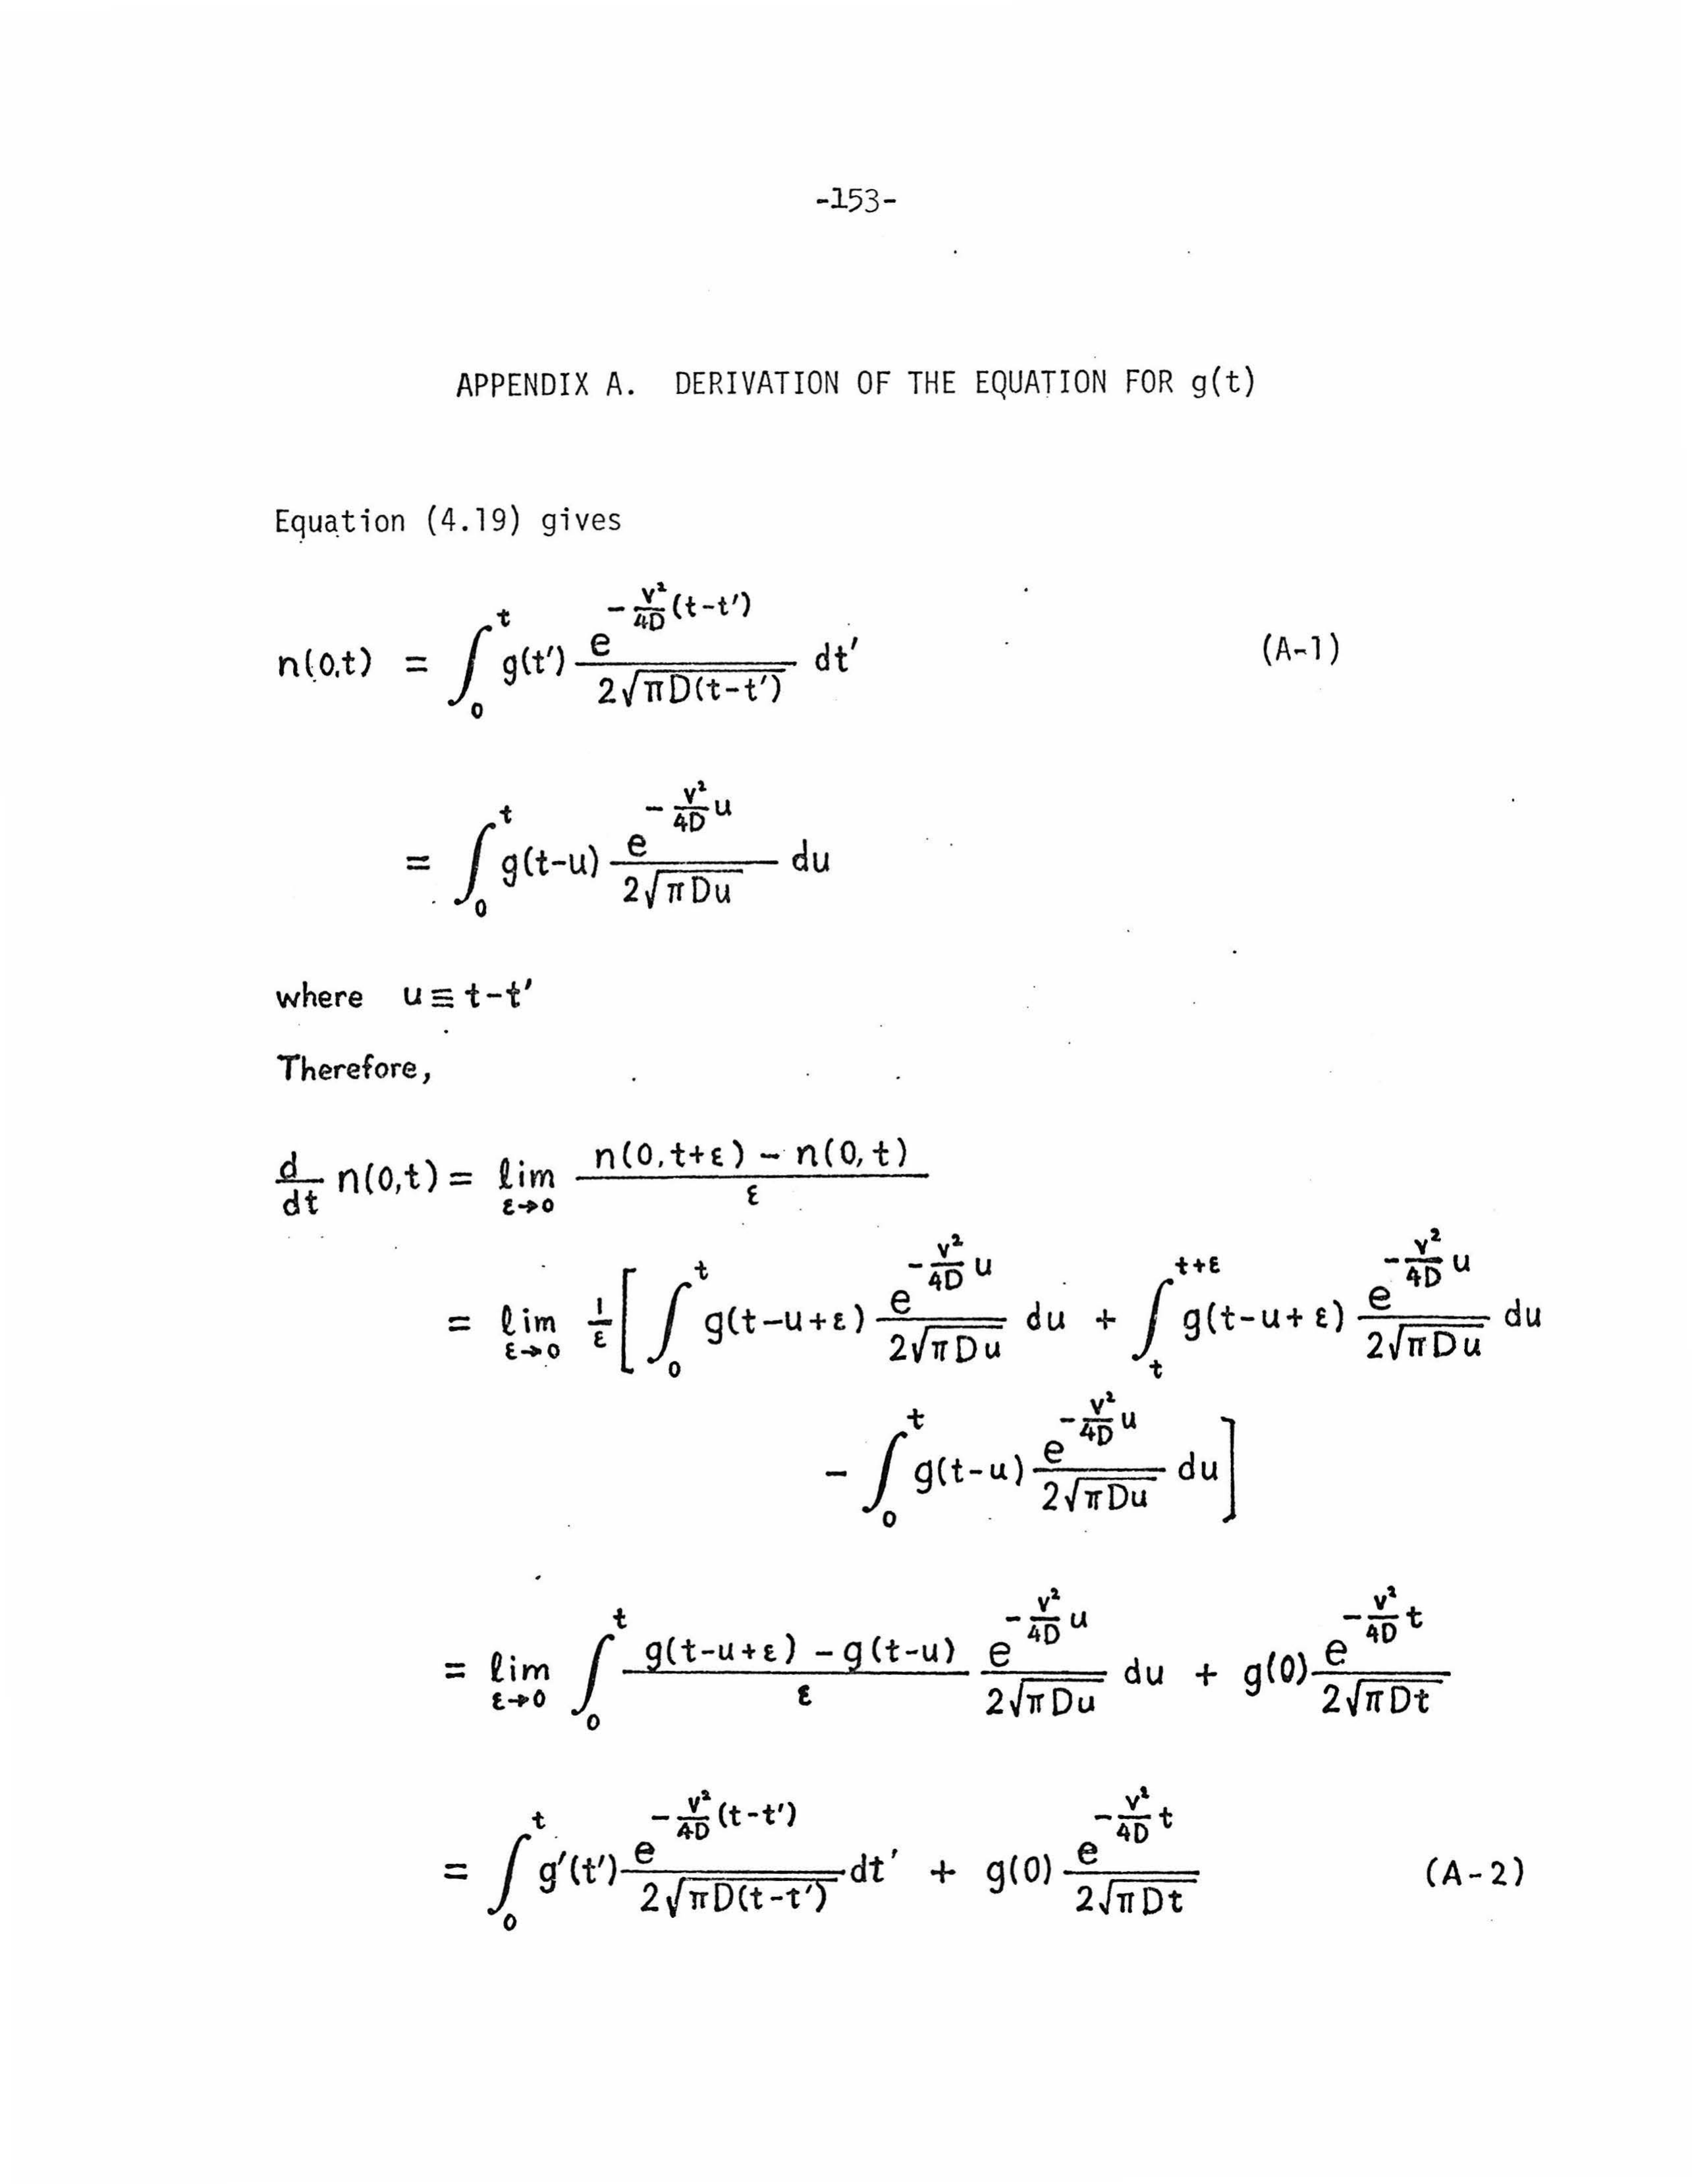 -153-
APPENDIX A. DERIVATION OF THE EQUATION FOR g(t)
Equation (4.19) gives
n(0,t) = ∫_0^t g(t') \frac{e^{-\frac{v^2}{4D}(t-t')}}{2\sqrt{πD(t-t')}} dt' (A-1)
= ∫_0^t g(t-u) \frac{e^{-\frac{v^2}{4D}u}}{2\sqrt{πDu}} du
where u ≡ t-t'
Therefore,
\frac{d}{dt} n(0,t) = \lim_{ε→0} \frac{n(0,t+ε) - n(0,t)}{ε}
= \lim_{ε→0} \frac{1}{ε} [ ∫_0^t g(t-u+ε) \frac{e^{-\frac{v^2}{4D}u}}{2\sqrt{πDu}} du + ∫_t^{t+ε} g(t-u+ε) \frac{e^{-\frac{v^2}{4D}u}}{2\sqrt{πDu}} du
- ∫_0^t g(t-u) \frac{e^{-\frac{v^2}{4D}u}}{2\sqrt{πDu}} du ]
= \lim_{ε→0} ∫_0^t \frac{g(t-u+ε) - g(t-u)}{ε} \frac{e^{-\frac{v^2}{4D}u}}{2\sqrt{πDu}} du + g(0) \frac{e^{-\frac{v^2}{4D}t}}{2\sqrt{πDt}}
= ∫_0^t g'(t') \frac{e^{-\frac{v^2}{4D}(t-t')}}{2\sqrt{πD(t-t')}} dt' + g(0) \frac{e^{-\frac{v^2}{4D}t}}{2\sqrt{πDt}} (A-2)